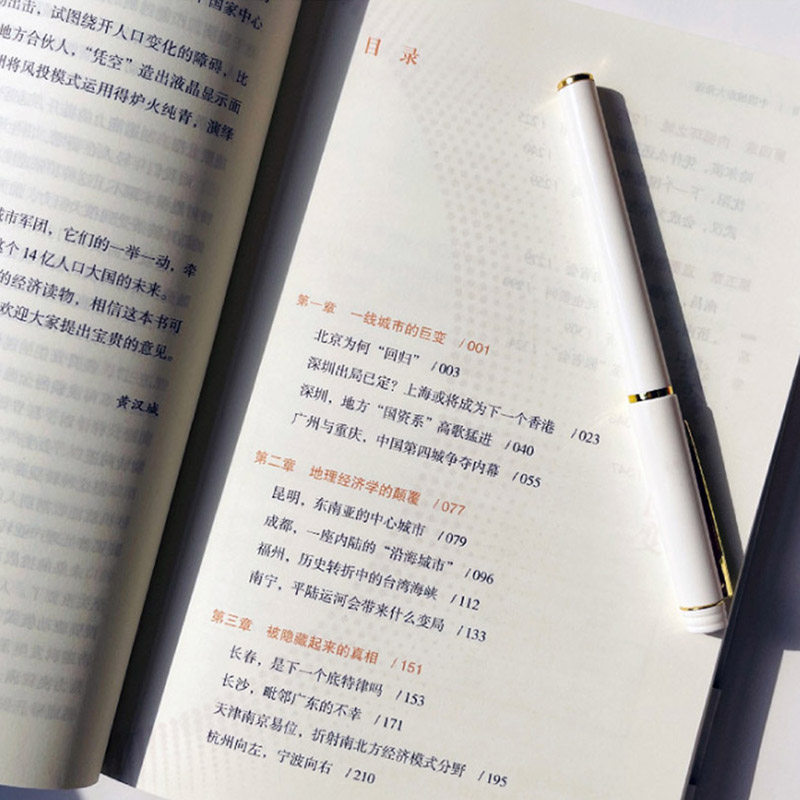 出击，试图绕开人口变化的障碍，比
地方合伙人，“凭空”造出液晶显示面
州将风投模式运用得炉火纯青，演绎
城市军团，它们的一举一动，牵
这个14亿人口大国的未来。
的经济读物，相信这本书可
欢迎大家提出宝贵的意见。
黄汉城
目录
第一章 一线城市的巨变 /001
北京为何“回归” /003
深圳出局已定？上海或将成为下一个香港 /023
深圳，地方“国资系”高歌猛进 /040
广州与重庆，中国第四城争夺内幕 /055
第二章 地理经济学的颠覆 /077
昆明，东南亚的中心城市 /079
成都，一座内陆的“沿海城市” /096
福州，历史转折中的台湾海峡 /112
南宁，平陆运河会带来什么变局 /133
第三章 被隐藏起来的真相 /151
长春，是下一个底特律吗 /153
长沙，毗邻广东的不幸 /171
天津南京易位，折射南北方经济模式分野 /195
杭州向左，宁波向右 /210